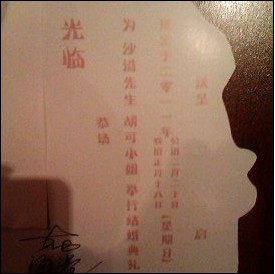 送呈 启
谨定于二零一一年
公历二月二十日
农历正月十八日
【星期日】
为 沙溢先生 胡可小姐 举行结婚典礼
恭请
光临